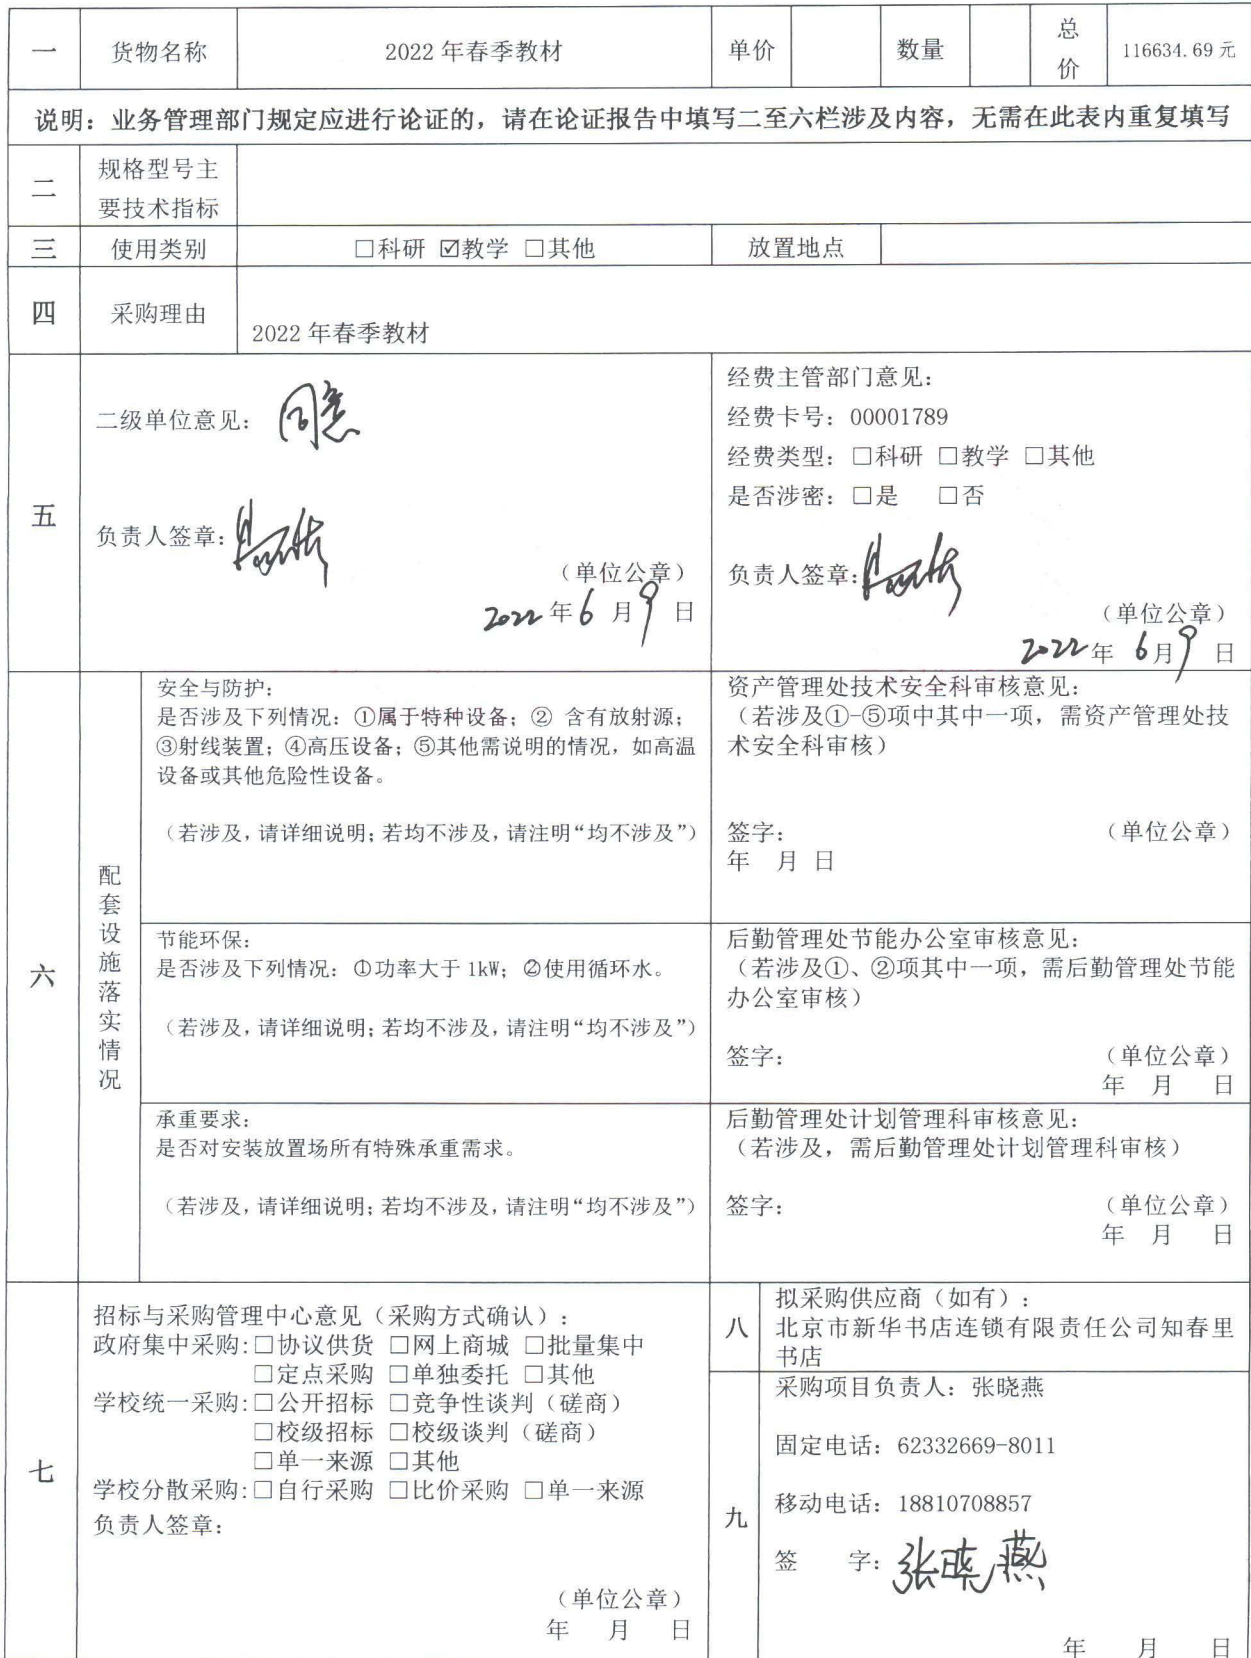 一 货物名称 2022年春季教材 单价 数量 总价 116634.69元
说明：业务管理部门规定应进行论证的，请在论证报告中填写二至六栏涉及内容，无需在此表内重复填写
二 规格型号主
要技术指标
三 使用类别 □科研 ☑教学 □其他 放置地点
四 采购理由
2022年春季教材
五
二级单位意见： 同意
负责人签章：
（单位公章）
2022年6月9日
经费主管部门意见：
经费卡号：00001789
经费类型：□科研 □教学 □其他
是否涉密：□是 □否
负责人签章：
（单位公章）
2022年6月9日
六
配套设施落实情况
安全与防护：
是否涉及下列情况：①属于特种设备；② 含有放射源；
③射线装置；④高压设备；⑤其他需说明的情况，如高温
设备或其他危险性设备。
（若涉及,请详细说明;若均不涉及,请注明“均不涉及”）
资产管理处技术安全科审核意见：
（若涉及①-⑤项中其中一项，需资产管理处技
术安全科审核）
签字： （单位公章）
年 月 日
节能环保：
是否涉及下列情况：①功率大于1kW；②使用循环水。
（若涉及,请详细说明;若均不涉及,请注明“均不涉及”）
后勤管理处节能办公室审核意见：
（若涉及①、②项其中一项，需后勤管理处节能
办公室审核）
签字： （单位公章）
年 月 日
承重要求：
是否对安装放置场所有特殊承重需求。
（若涉及,请详细说明;若均不涉及,请注明“均不涉及”）
后勤管理处计划管理科审核意见：
（若涉及，需后勤管理处计划管理科审核）
签字： （单位公章）
年 月 日
七
招标与采购管理中心意见（采购方式确认）：
政府集中采购:□协议供货 □网上商城 □批量集中
□定点采购 □单独委托 □其他
学校统一采购:□公开招标 □竞争性谈判（磋商）
□校级招标 □校级谈判（磋商）
□单一来源 □其他
学校分散采购:□自行采购 □比价采购 □单一来源
负责人签章：
（单位公章）
年 月 日
八
拟采购供应商（如有）：
北京市新华书店连锁有限责任公司知春里
书店
九
采购项目负责人：张晓燕
固定电话：62332669-8011
移动电话：18810708857
签 字：张晓燕
年 月 日